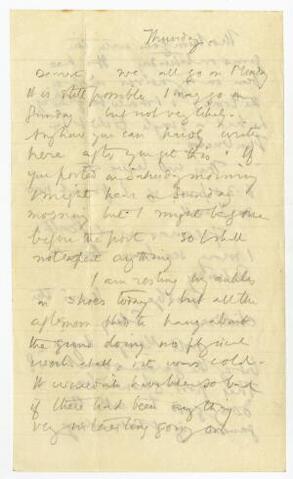 Thursday
Dearest we all go on Monday
It is still possible I may go on
Sunday but not very likely.
Anyhow you can hardly write
here after you get this. If
you posted on Saturday morning
I might hear on Sunday
morning but I might be gone
before the post so I shall
not expect anything.
I am resting my ankles
in shoes today but all the
afternoon I had to hang about
the guns doing no physical
work at all it was cold.
It wouldn't have been so bad
if there had been anything
very interesting going on